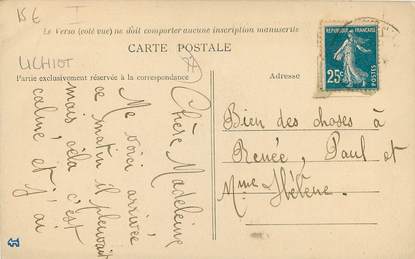 15€ I
Le Verso (coté vue) ne doit comporter aucune inscription manuscrite
CARTE POSTALE
LICHIOT
Partie exclusivement réservée à la correspondance
Adresse
REPUBLIQUE FRANÇAISE
25c
POSTES
Chère Madeleine
Me voici arrivée
ce matin il pleuvait
mais cela c'est
calmé et j'ai
Bien des choses à
Renée, Paul et
Mme Hélène.